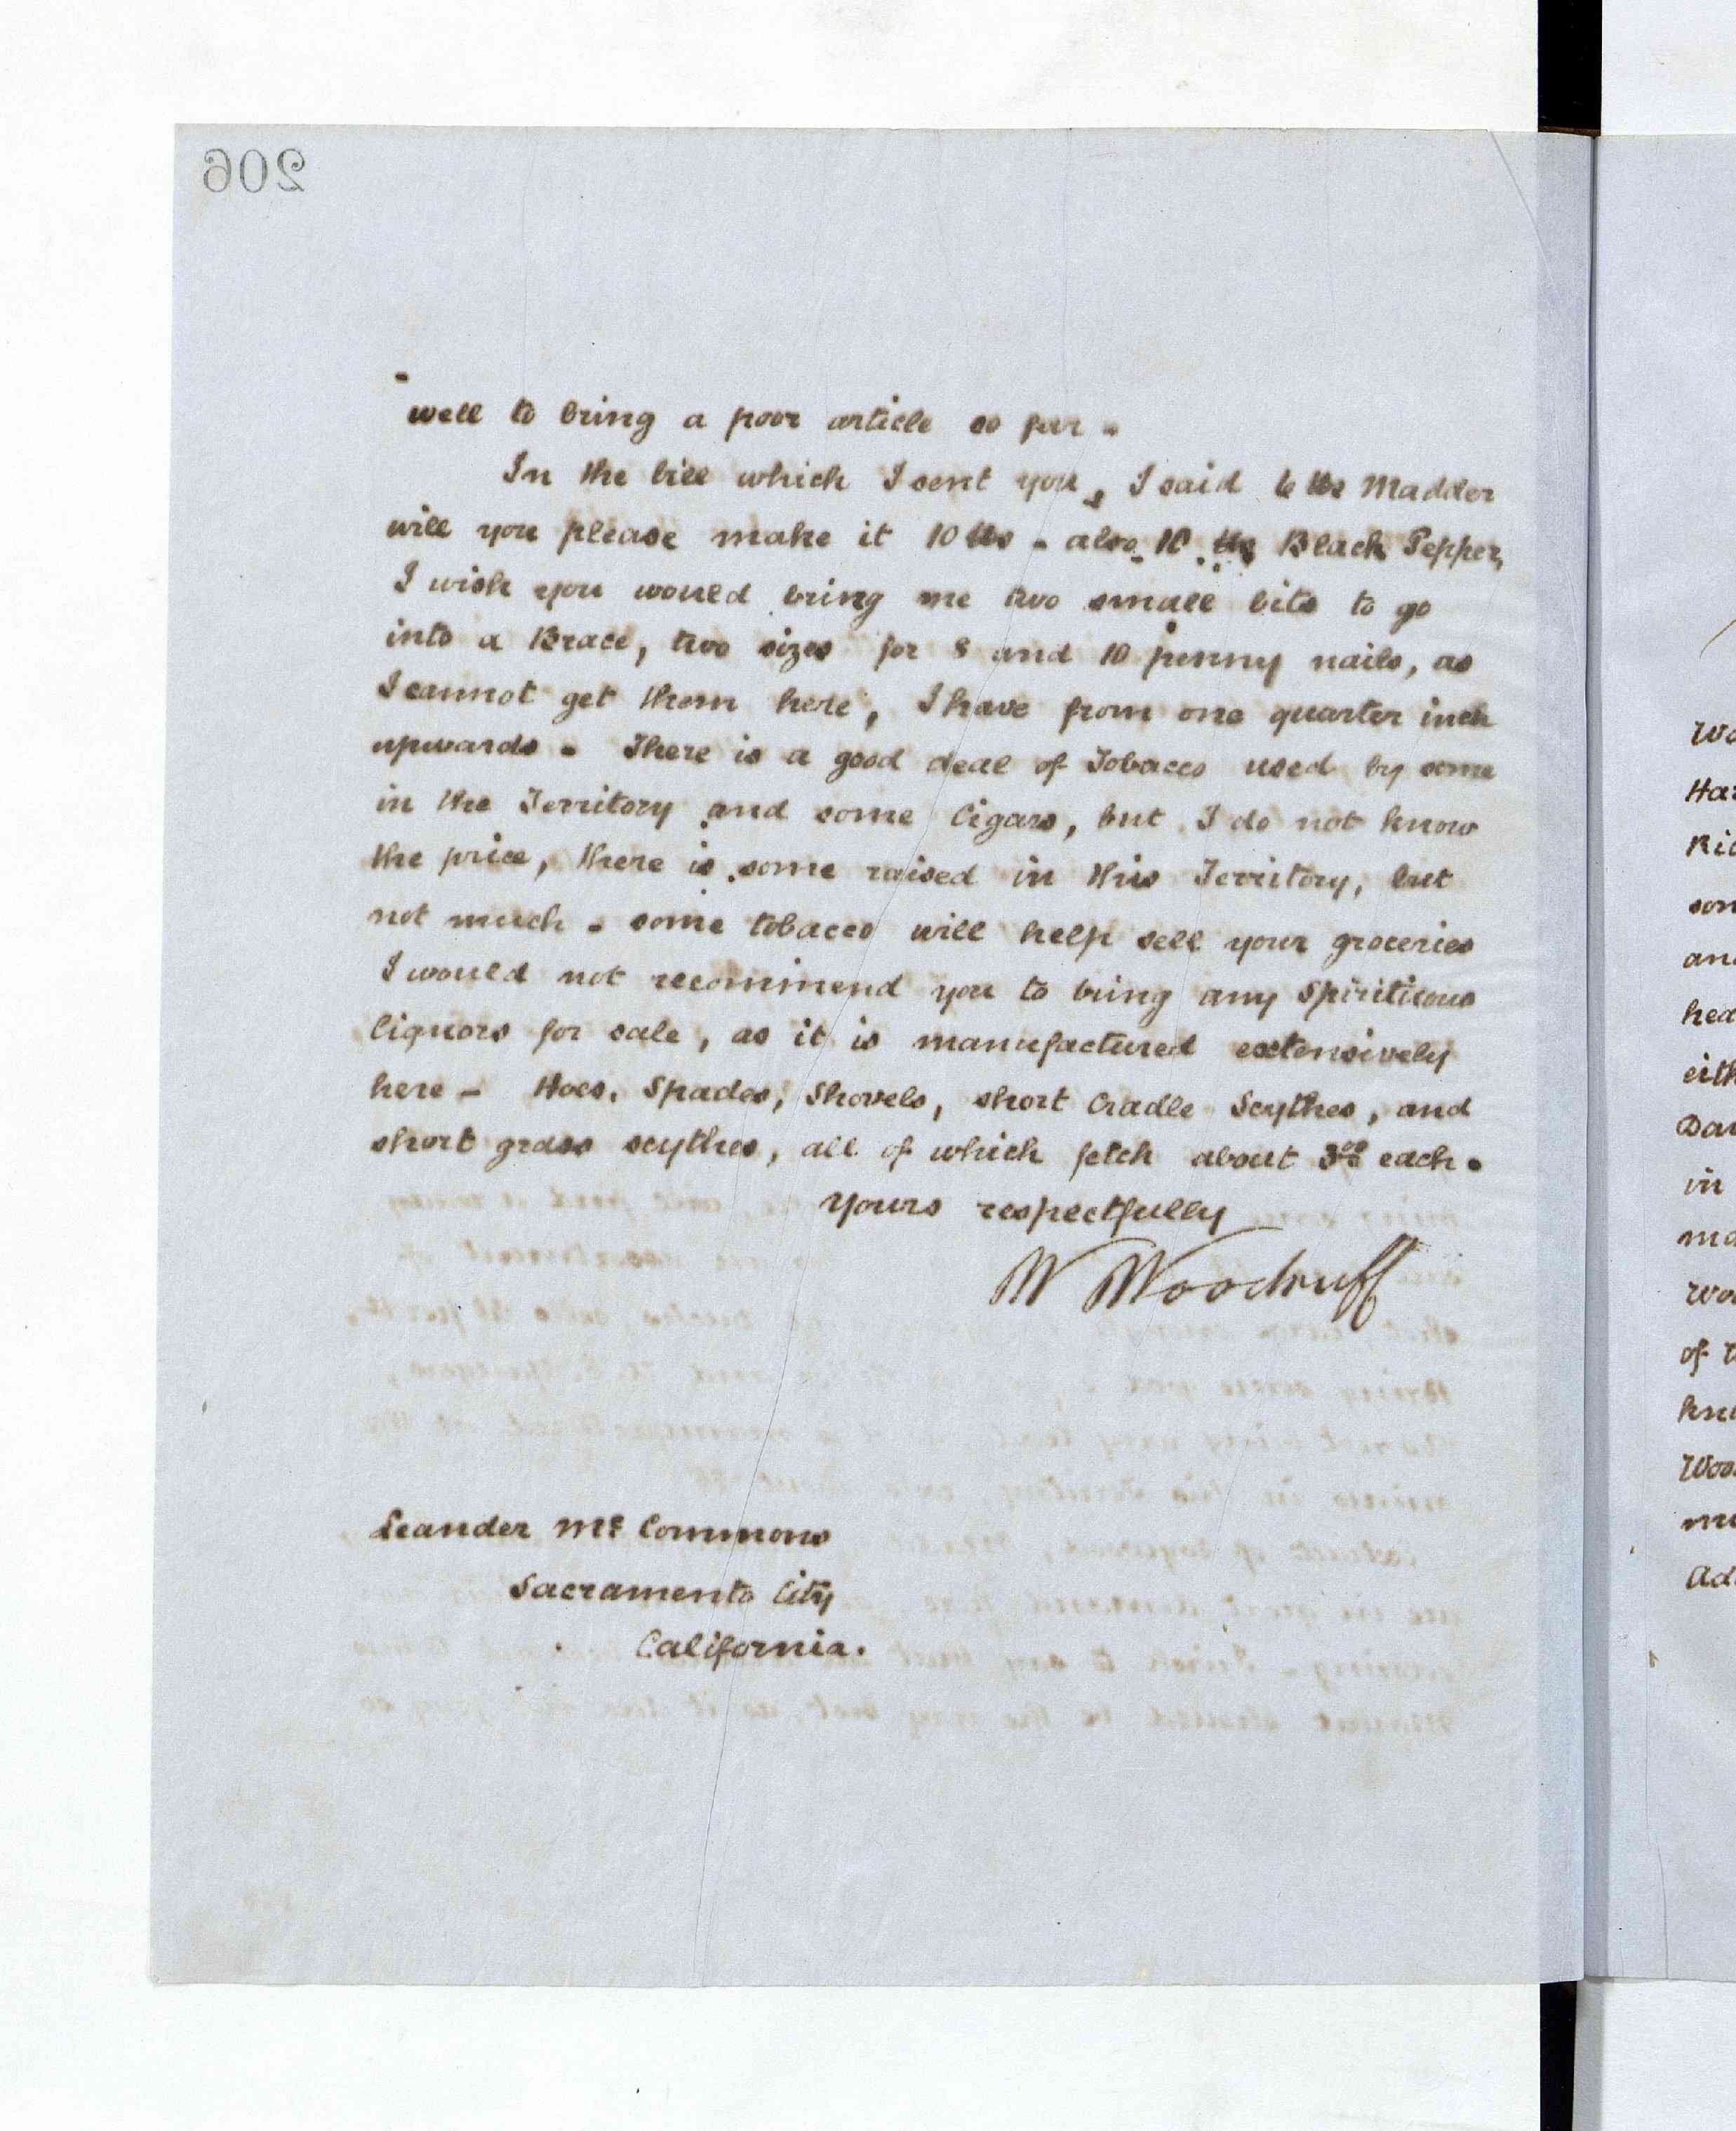 206
well to bring a poor article so far -
In the bill which I sent you, I said 6 lbs Madder
will you please make it 10 lbs - also 10 lbs Black Pepper,
I wish you would bring me two small bits to go
into a Brace, two sizes for 8 and 10 penny nails, as
I cannot get them here, I have from one quarter inch
upwards - There is a good deal of Tobacco used by some
in the Territory and some Cigars, but I do not know
the price, there is some raised in this Territory, but
not much - some tobacco will help sell your groceries
I would not recommend you to bring any Spirituous
liquors for sale, as it is manufactured extensively
here - Hoes, Spades, Shovels, short Cradle Scythes, and
short grass scythes, all of which fetch about 3.00 each.
Yours respectfully
W Woodruff
Leander Mc Commons
Sacramento City
California.
son
of
in